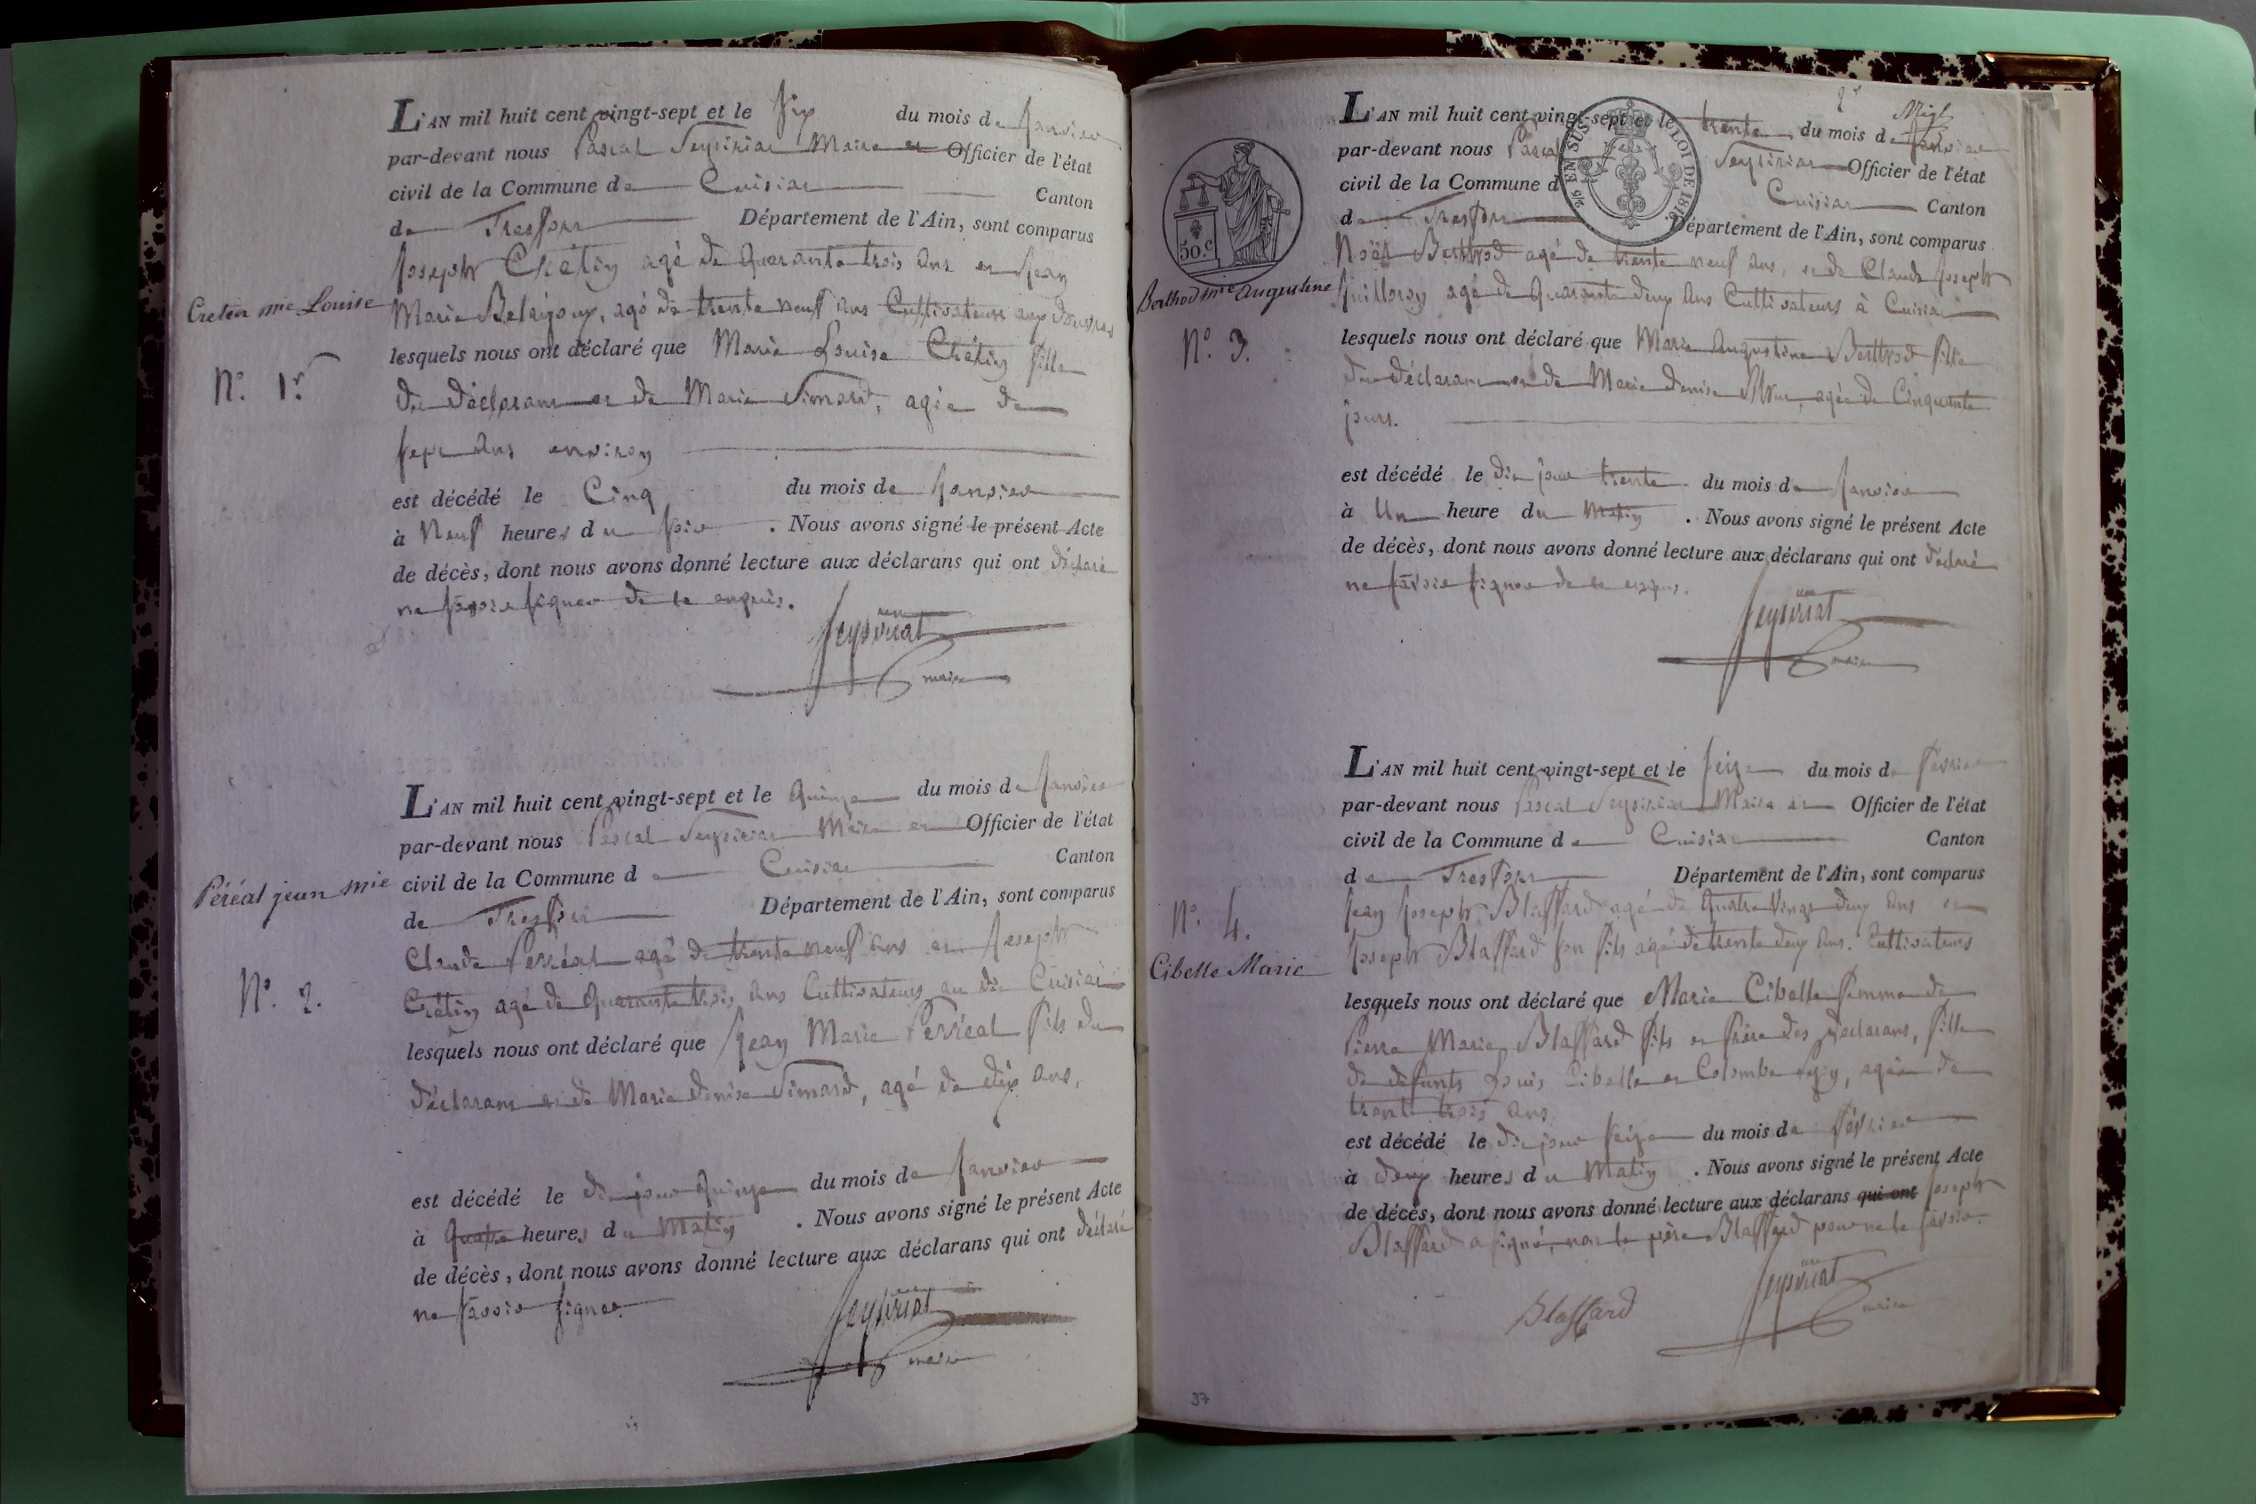 L'AN mil huit cent vingt-sept et le six du mois de Janvier
par-devant nous Pascal Seysiriat Maire et Officier de l'état
civil de la Commune de Cuisiat Canton
de Treffort Département de l'Ain, sont comparus
Joseph Chétin agé de Quarante trois ans et Jean
Cretin mie Louise
Marie agé de trente neuf ans Cultivateurs
lesquels nous ont déclaré que Marie Louise Chétin fille
N°. 1r.
du déclarant et de Marie Simard, agée de
sept ans environ
est décédé le Cinq du mois de Janvier
à Neuf heures du soir . Nous avons signé le présent Acte
de décès, dont nous avons donné lecture aux déclarans qui ont déclaré
ne savoir signer de ce enquis.
Seysiriat
maire
L'AN mil huit cent vingt-sept et le Quinze du mois de Janvier
par-devant nous Pascal Seysiriat Maire et Officier de l'état
Péréal jean mie
civil de la Commune de Cuisiat Canton
de Treffort Département de l'Ain, sont comparus
Claude Perréal agé de trente neuf ans et Joseph
N°. 2.
Crétin agé de Quarante trois ans Cultivateurs au dit Cuisiat
lesquels nous ont déclaré que Jean Marie Perréal fils du
déclarant et de Marie Denise Simard, agé de dix ans,
est décédé le dit jour Quinze du mois de Janvier
à Quatre heures du Matin . Nous avons signé le présent Acte
de décès, dont nous avons donné lecture aux déclarans qui ont déclaré
ne savoir signer.
Seysiriat
maire
L'AN mil huit cent vingt-sept et le trente du mois de Janvier
par-devant nous Pascal Seysiriat Officier de l'état
civil de la Commune d Cuisiat Canton
de Treffort Département de l'Ain, sont comparus
EN SUS LOI DE 1816
50.c
Noël Berthod agé de trente neuf ans, et de Claude Joseph
Berthod mie Augustine
Guilloron agé de Quarante deux ans Cultivateurs à Cuisiat
N°. 3.
lesquels nous ont déclaré que Marie Augustine Berthod fille
du déclarant et de Marie Denise agée de Cinquante
jours.
est décédé le dit jour trente du mois de Janvier
à Un heure du Matin . Nous avons signé le présent Acte
de décès, dont nous avons donné lecture aux déclarans qui ont déclaré
ne savoir signer de ce enquis.
Seysiriat
maire
L'AN mil huit cent vingt-sept et le seize du mois de Février
par-devant nous Pascal Seysiriat Maire et Officier de l'état
civil de la Commune de Cuisiat Canton
de Treffort Département de l'Ain, sont comparus
N°. 4.
Jean Joseph Blaffard agé de Quatre Vingt deux ans et
Joseph Blaffard son fils agé de trente deux ans. Cultivateurs
Cibelle Marie
lesquels nous ont déclaré que Marie Cibelle femme de
Pierre Marie Blaffard fils et frère des déclarans, fille
de defunts Louis Cibelle et Colombe agée de
trente trois ans
est décédé le dit jour seize du mois de Février
à deux heures du Matin . Nous avons signé le présent Acte
de décès, dont nous avons donné lecture aux déclarans qui ont Joseph
Blaffard a signé, non le père Blaffard pour ne le savoir.
Blaffard
Seysiriat
maire
37